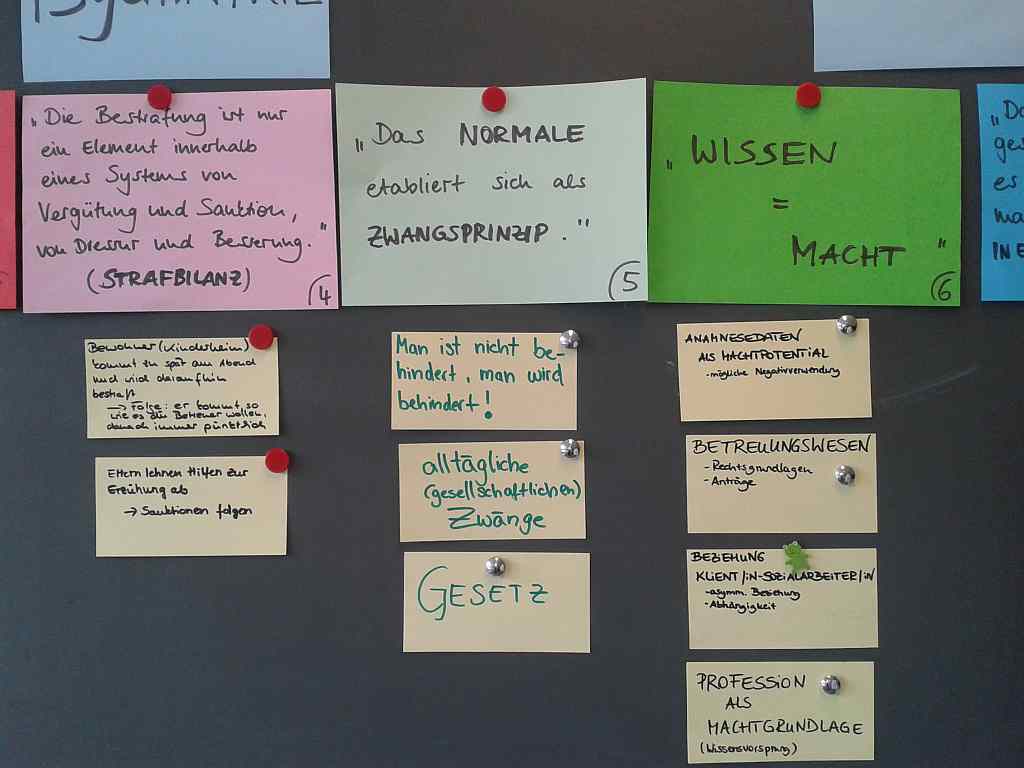 „Die Bestrafung ist nur
ein Element innerhalb
eines Systems von
Vergütung und Sanktion,
von Dressur und Besserung."
(STRAFBILANZ)
4
Bewohner (Kinderheim)
kommt zu spät am Abend
und wird daraufhin
bestraft
→ Folge: er kommt, so
wie es die Betreuer wollen,
danach immer pünktlich
Eltern lehnen Hilfen zur
Erziehung ab
→ Sanktionen folgen
„Das NORMALE
etabliert sich als
ZWANGSPRINZIP."
5
Man ist nicht be-
hindert, man wird
behindert!
alltägliche
(gesellschaftlichen)
Zwänge
GESETZ
„WISSEN
=
MACHT"
6
ANAMNESEDATEN
ALS MACHTPOTENTIAL
- mögliche Negativverwendung
BETREUUNGSWESEN
- Rechtsgrundlagen
- Anträge
BEZIEHUNG
KLIENT/IN-SOZIALARBEITER/IN
- asymm. Beziehung
- Abhängigkeit
PROFESSION
ALS
MACHTGRUNDLAGE
(Wissensvorsprung)
ges
es
IN E